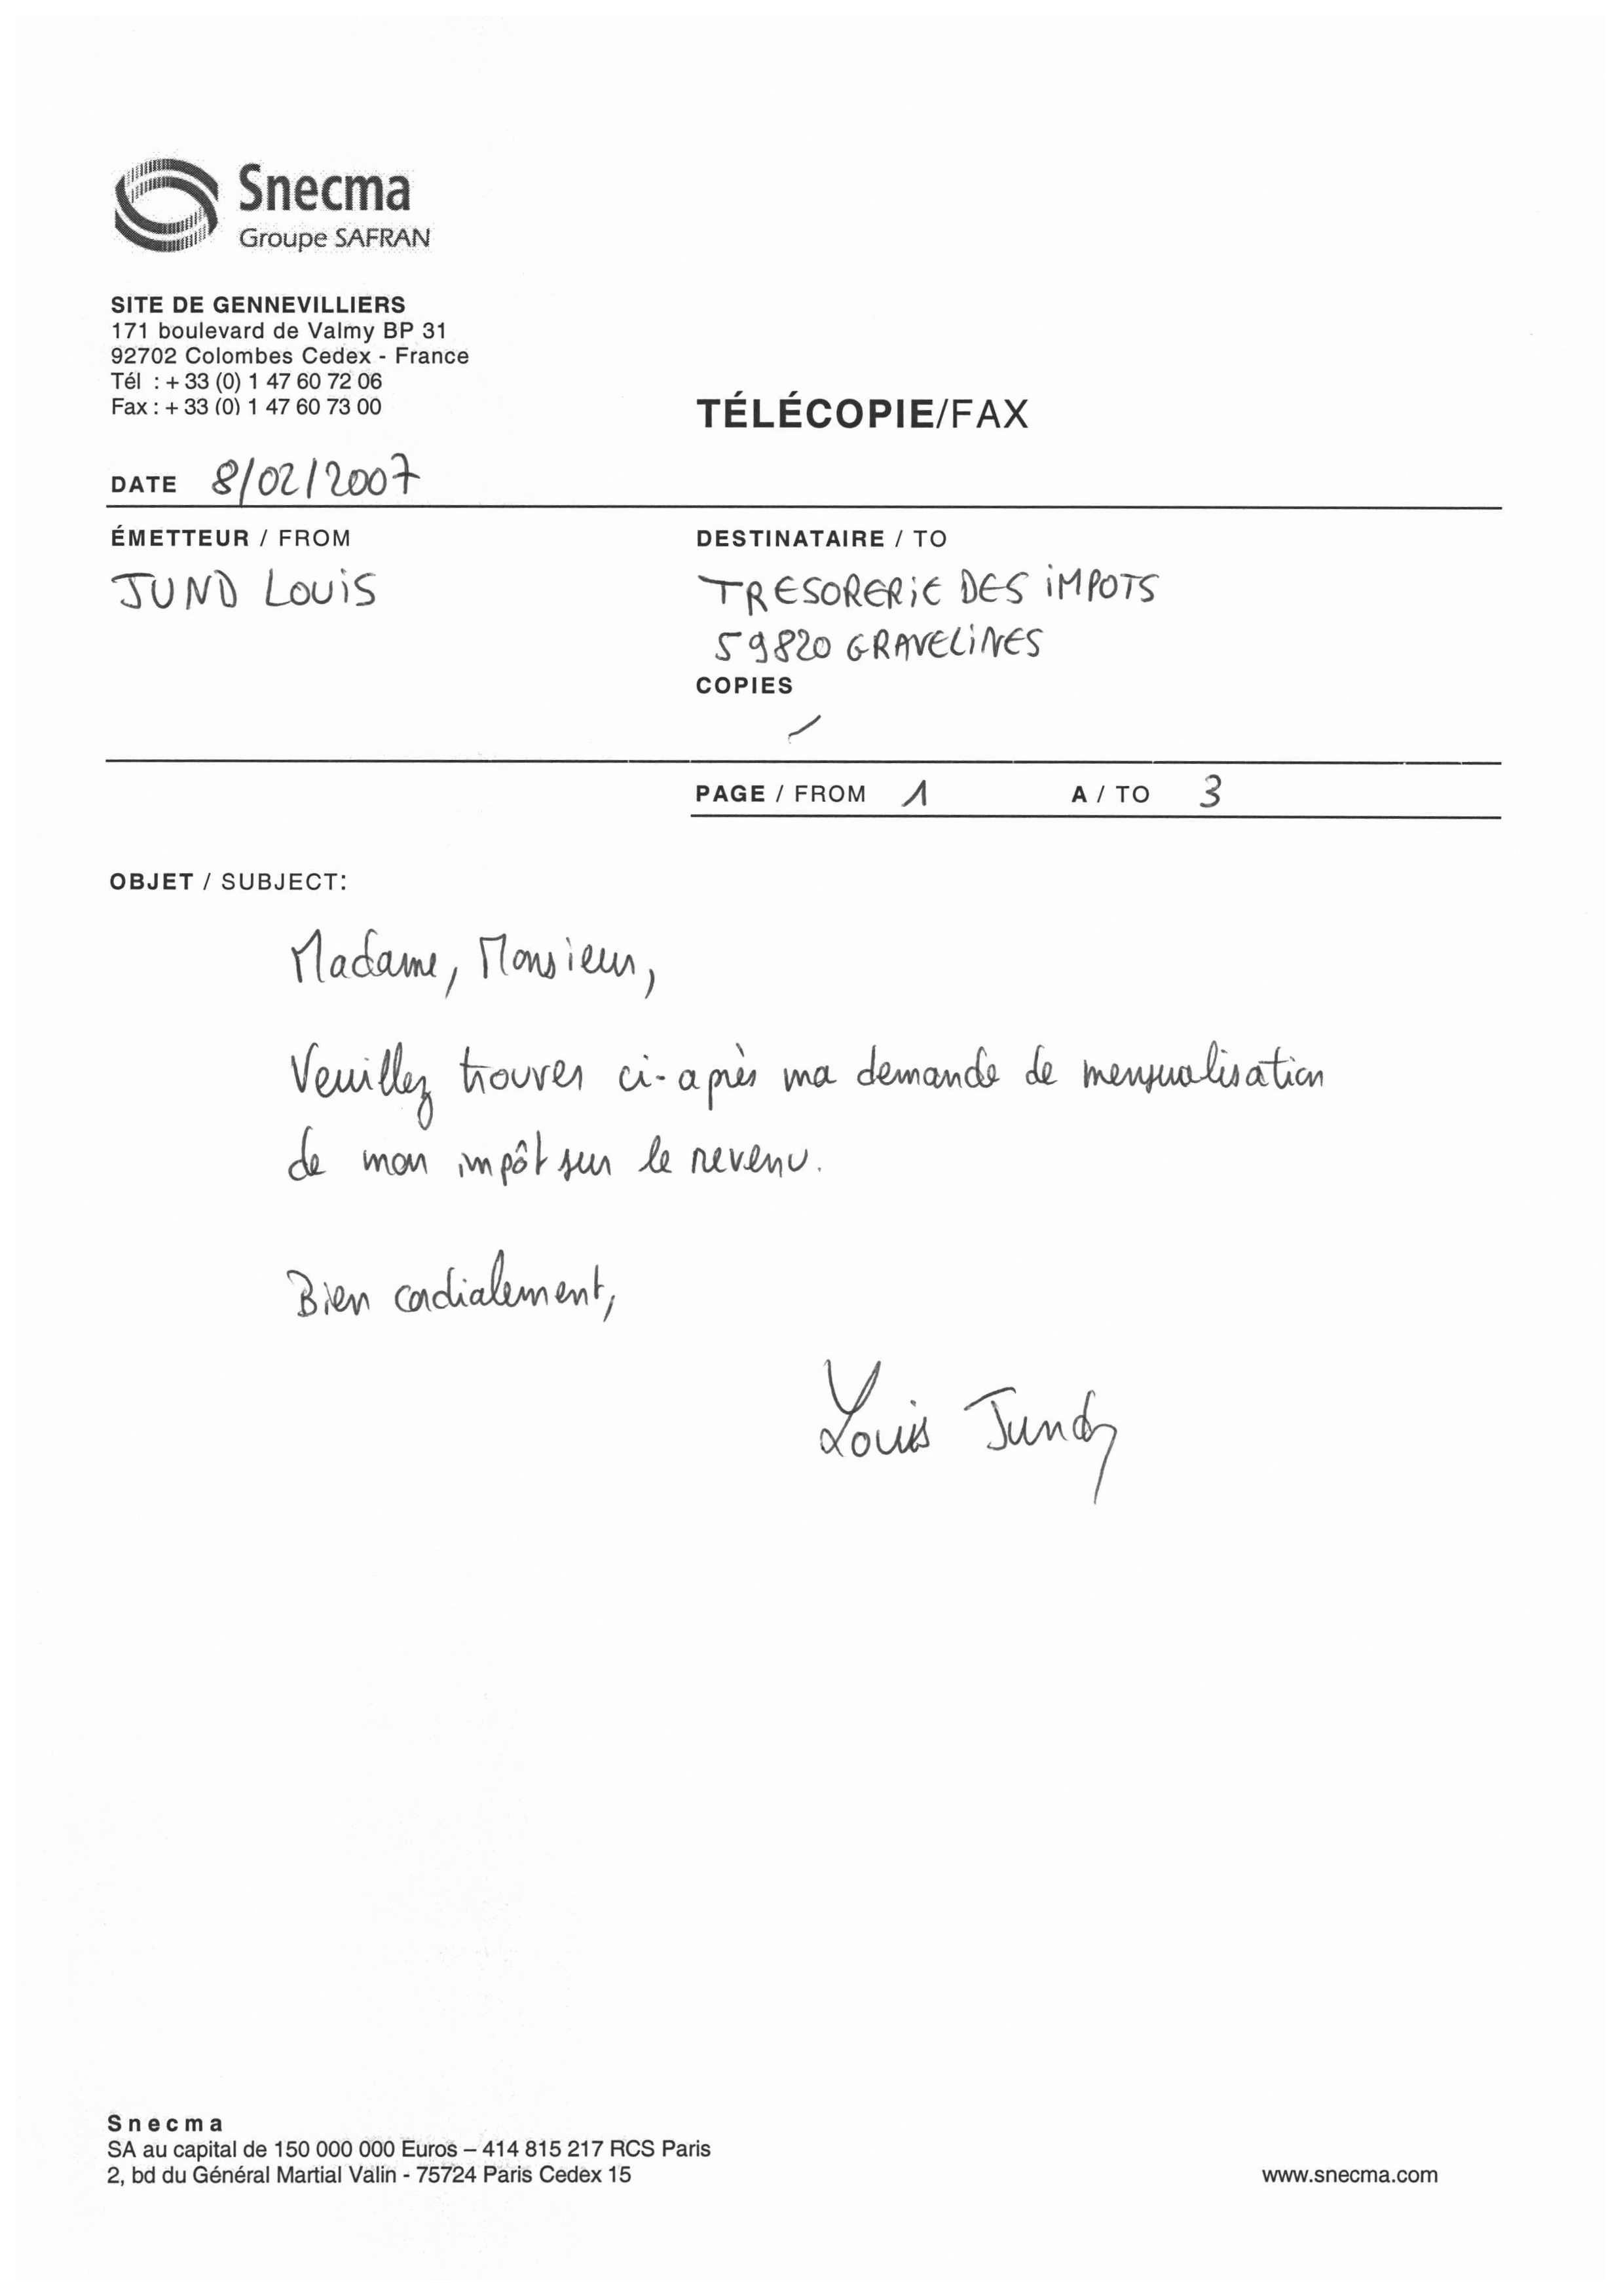 Snecma
Groupe SAFRAN
SITE DE GENNEVILLIERS
171 boulevard de Valmy BP 31
92702 Colombes Cedex - France
Tél : + 33 (0) 1 47 60 72 06
Fax : + 33 (0) 1 47 60 73 00
TÉLÉCOPIE/FAX
DATE 8/02/2007
ÉMETTEUR / FROM
JUND LOUIS
DESTINATAIRE / TO
TRESORERIE DES IMPOTS
59820 GRAVELINES
COPIES
/
PAGE / FROM 1 A / TO 3
OBJET / SUBJECT:
Madame, Monsieur,
Veuillez trouver ci-après ma demande de mensualisation
de mon impôt sur le revenu.
Bien cordialement,
Louis Jund
Snecma
SA au capital de 150 000 000 Euros – 414 815 217 RCS Paris
2, bd du Général Martial Valin - 75724 Paris Cedex 15
www.snecma.com